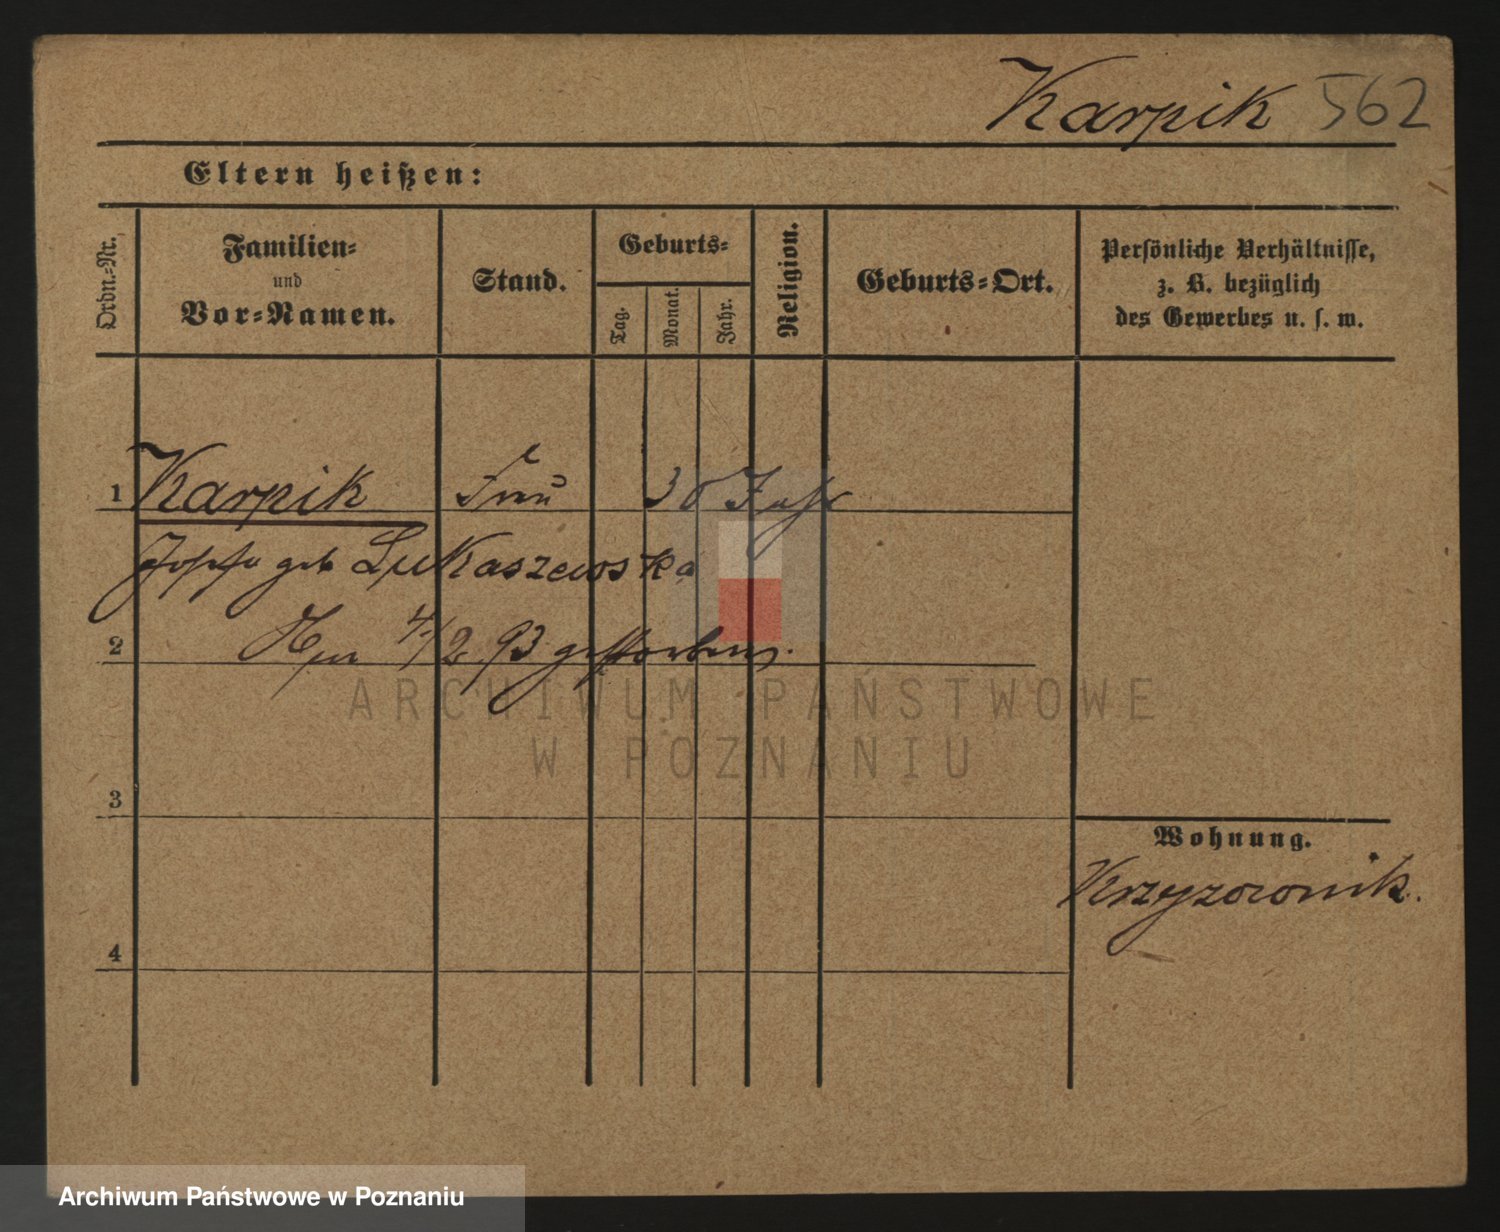 Karpik 562
Eltern heißen:
Ordn.-Nr.
Familien-
und
Vor-Namen.
Stand.
Geburts-
Tag.
Monat.
Jahr.
Religion.
Geburts-Ort.
Persönliche Verhältnisse,
z. B. bezüglich
des Gewerbes u. s. w.
1 Karpik Frau 30 Jahr
Josefa geb Lukaszewska
2 4/2 93 gestorben.
3
4
Wohnung.
Krzyzownik.
ARCHIWUM PAŃSTWOWE
W POZNANIU
Archiwum Państwowe w Poznaniu